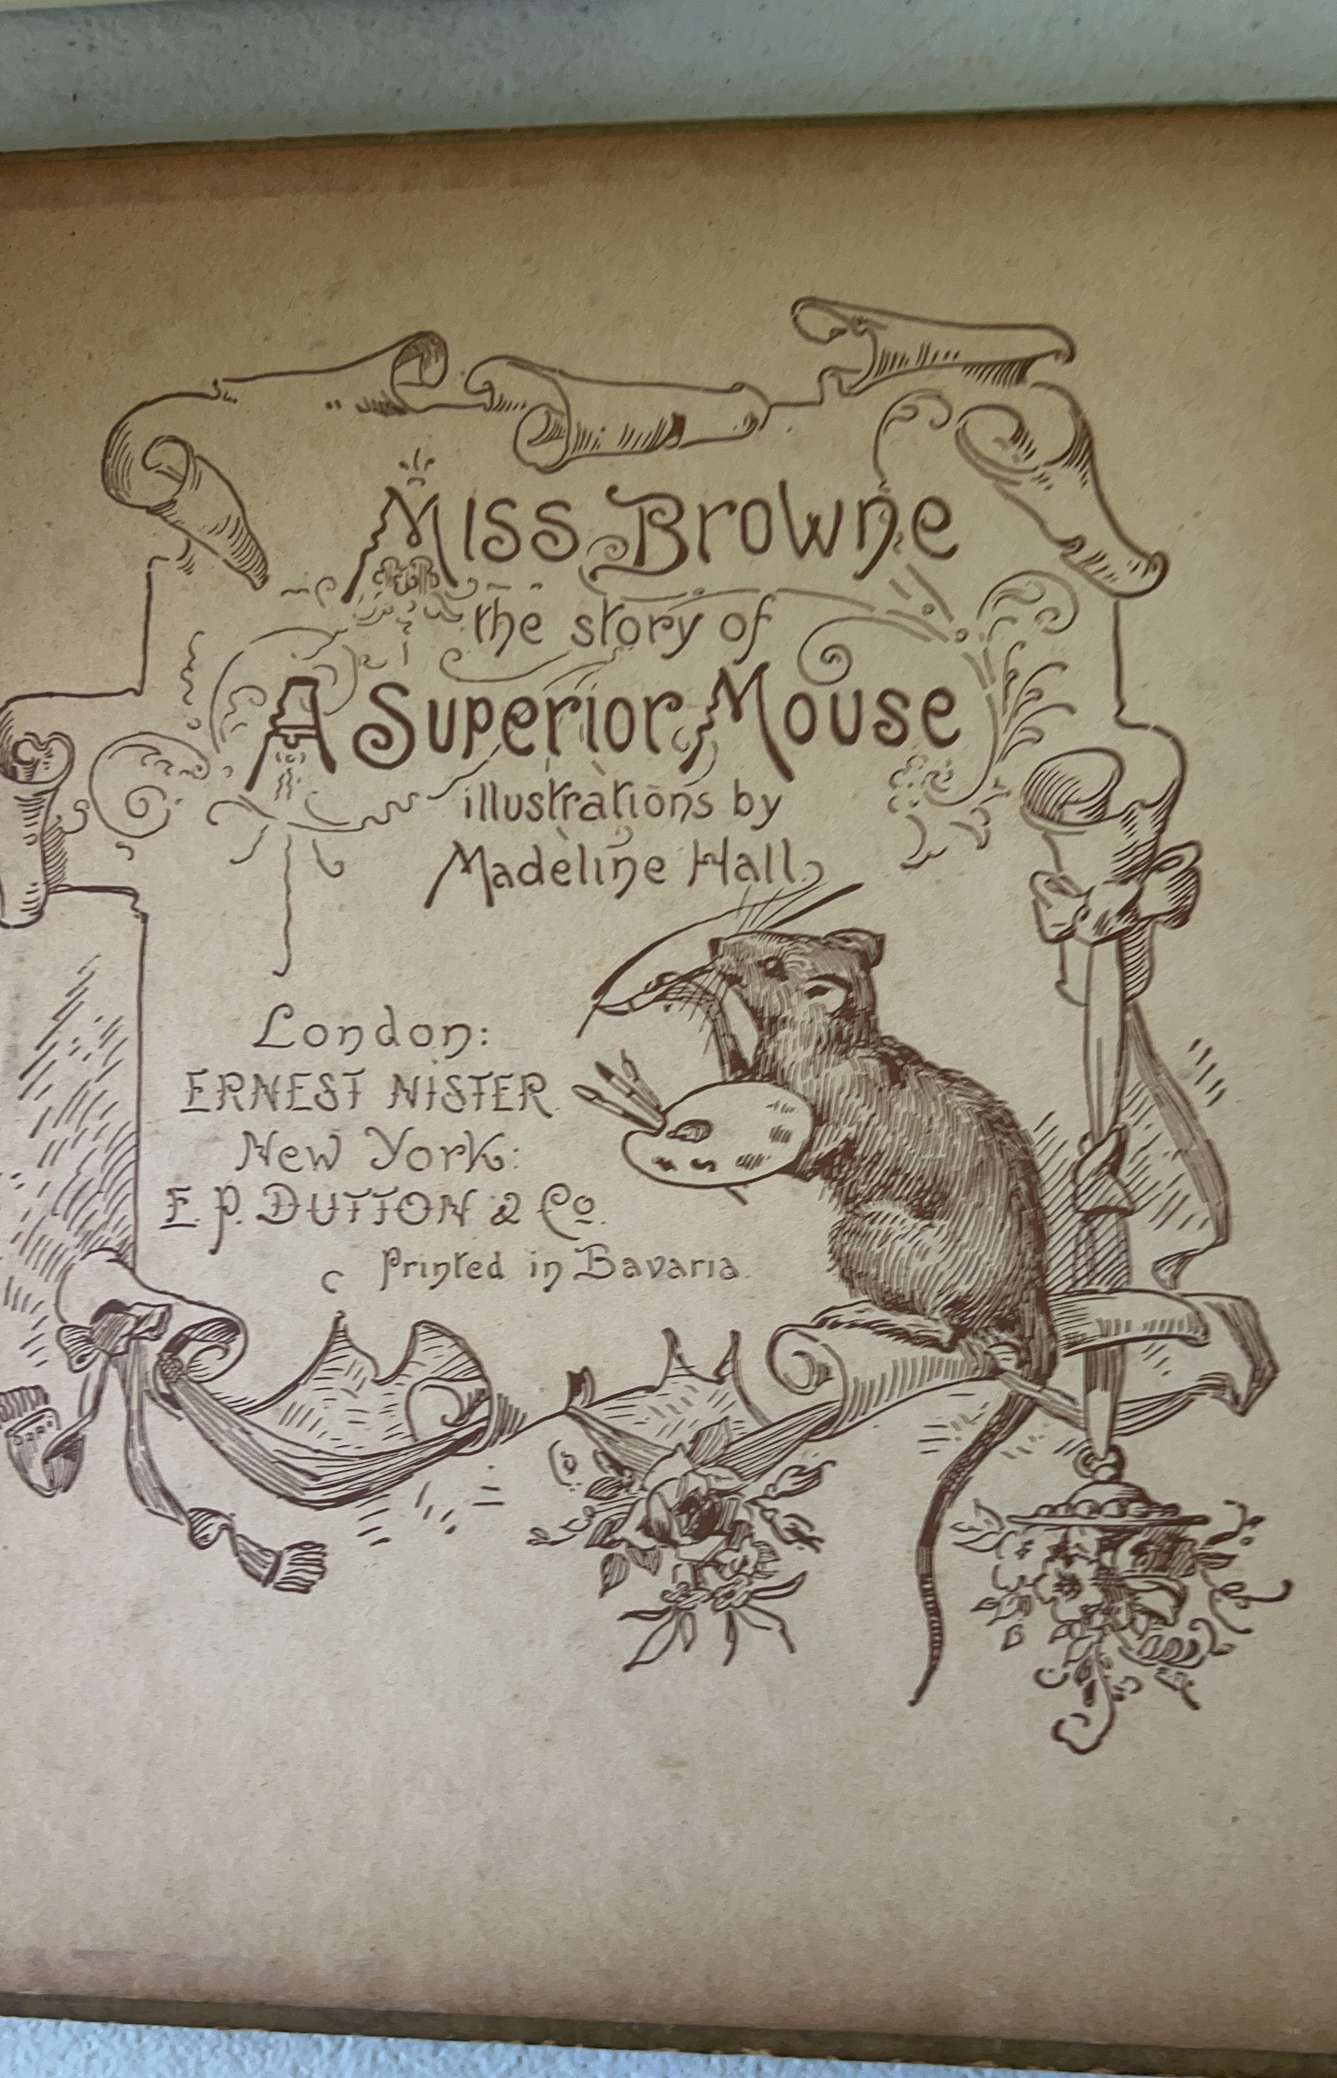 Miss Browne
the story of
A Superior Mouse
illustrations by
Madeline Hall
London:
ERNEST NISTER.
New York:
E. P. DUTTON & Co.
Printed in Bavaria.